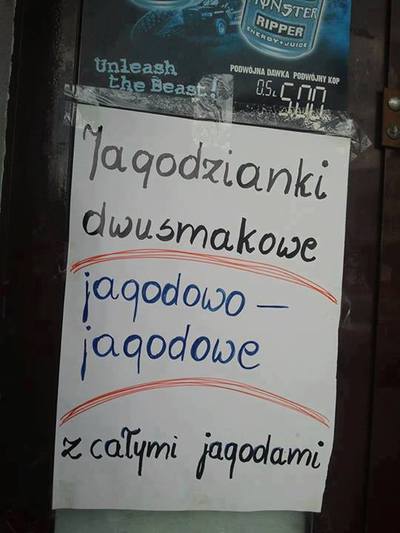 MONSTER
RIPPER
ENERGY+JUICE
Unleash
the Beast!
PODWÓJNA DAWKA PODWÓJNY KOP
0.5L 5.00
Jagodzianki
dwusmakowe
jagodowo –
jagodowe
z całymi jagodami